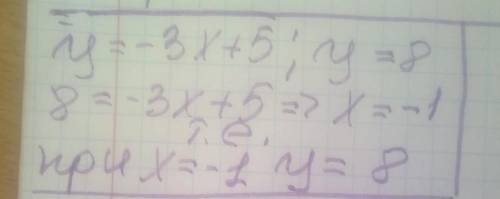 y = -3x+5; y = 8
8 = -3x+5 => x = -1
т.е.
при x = -1 y = 8